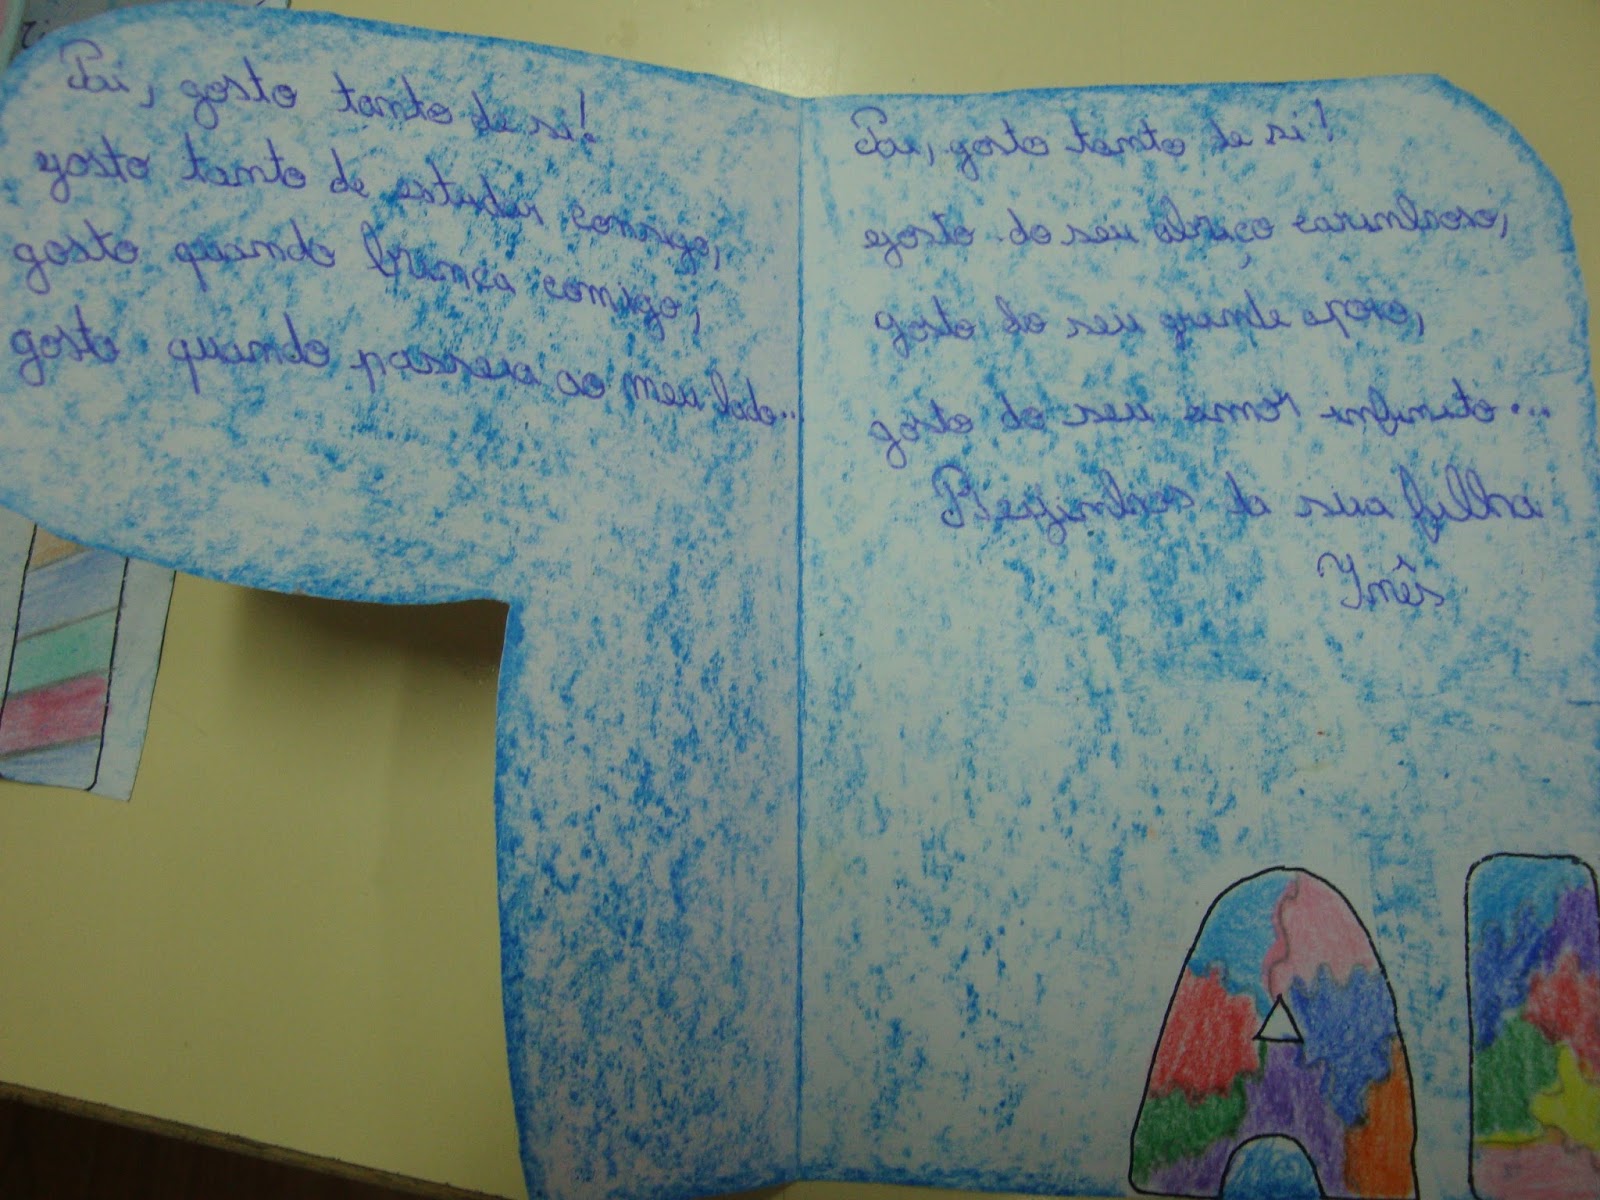 Pai, gosto tanto de si!
gosto tanto de estudar comsigo,
gosto quando brinca comigo,
gosto quando passeia ao meu lado...
Pai, gosto tanto de si!
gosto do seu abraço carinhoso,
gosto do seu grande apoio,
gosto do seu amor infinito...
Beijinhos da sua filha
Inês
AI